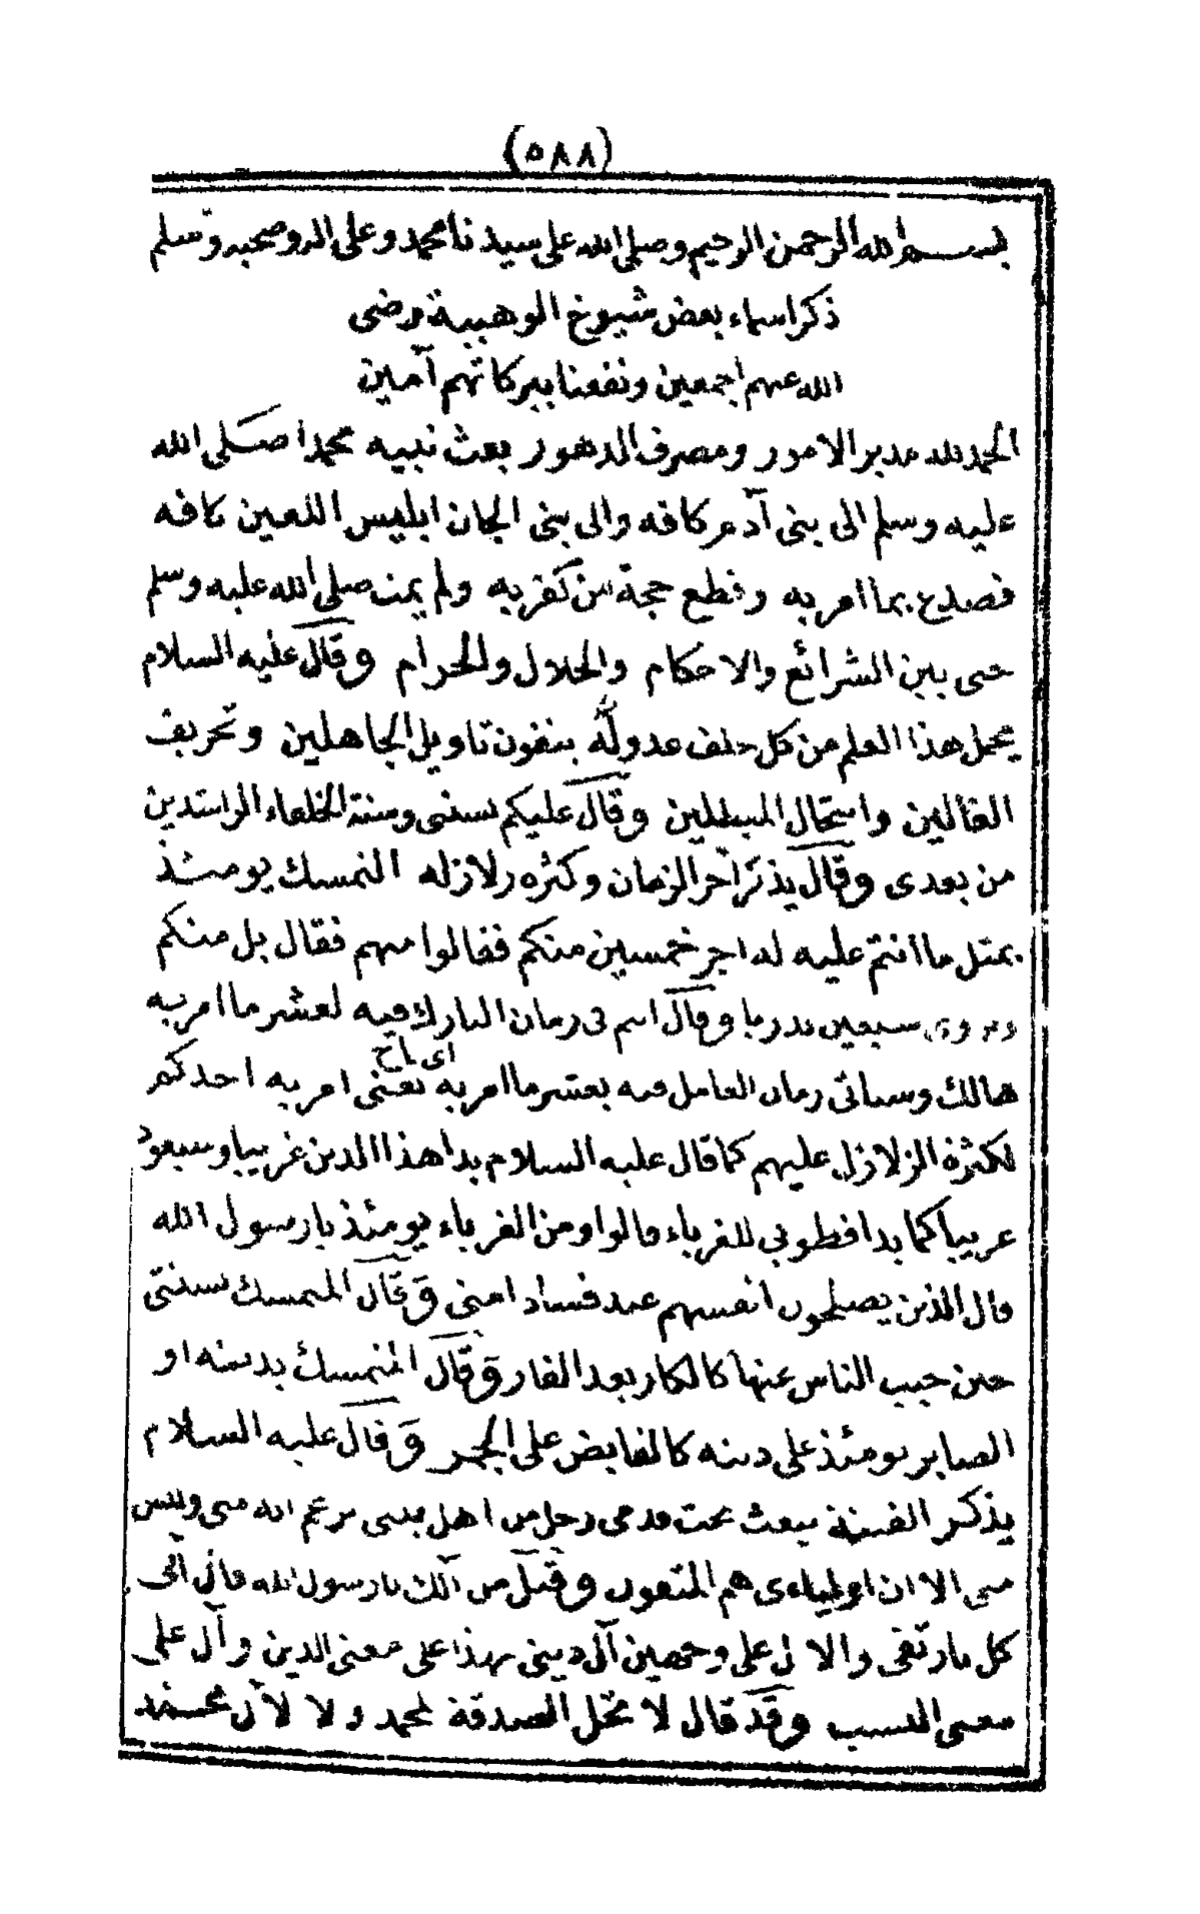 (٥٨٨)
بسم الله الرحمن الرحيم وصلى الله على سيدنا محمد وعلى اله وصحبه وسلم
ذكر اسماء بعض شيوخ الوهبية رضى
الله عنهم اجمعين ونفعنا ببركاتهم آمين
الحمد لله مدبر الامور ومصرف الدهور بعث نبيه محمدا صلى الله
عليه وسلم الى بنى آدم كافه والى بنى الجان ابليس اللعين كافه
فصدع بما امر به وقطع حجة من كفر به ولم يمت صلى الله عليه وسلم
حتى بين الشرائع والاحكام والحلال والحرام وقال عليه السلام
يحمل هذا العلم من كل خلف عدوله ينفون تاويل الجاهلين وتحريف
الغالين وانتحال المبطلين وقال عليكم بسنتى وسنة الخلفاء الراشدين
من بعدى وقال يذكر آخر الزمان وكثره زلازله المتمسك يومئذ
بمثل ما انتم عليه له اجر خمسين منكم فقالوا منهم فقال بل منكم
وروى سبعين بدريا وقال انتم فى زمان التارك فيه لعشر ما امر به
هالك وسياتى زمان العامل فيه بعشر ما امر به يعنى امر به احدكم
اى ناج
لكثرة الزلازل عليهم كما قال عليه السلام بدا هذا الدين غريبا وسيعود
غريبا كما بدا فطوبى للغرباء قالوا ومن الغرباء يومئذ يا رسول الله
قال الذين يصلحون انفسهم عند فساد امتى وقال المتمسك بسنتى
حين الناس عنها كالكار بعد الفار وقال المتمسك بدينه او
الصابر يومئذ على دينه كالقابض على الجمر وقال عليه السلام
يذكر الفتنة تبعث تحت قدمى رجل من اهل بيتى يزعم انه منى وليس
منى الا ان اوليائى هم المتقون وقيل من آلك يا رسول الله قال آلى
كل مار تقى والال على وجهين آل دينى بهذا على معنى الدين وآل على
معنى النسب وقد قال لا تحل الصدقة لمحمد ولا لآل محمد